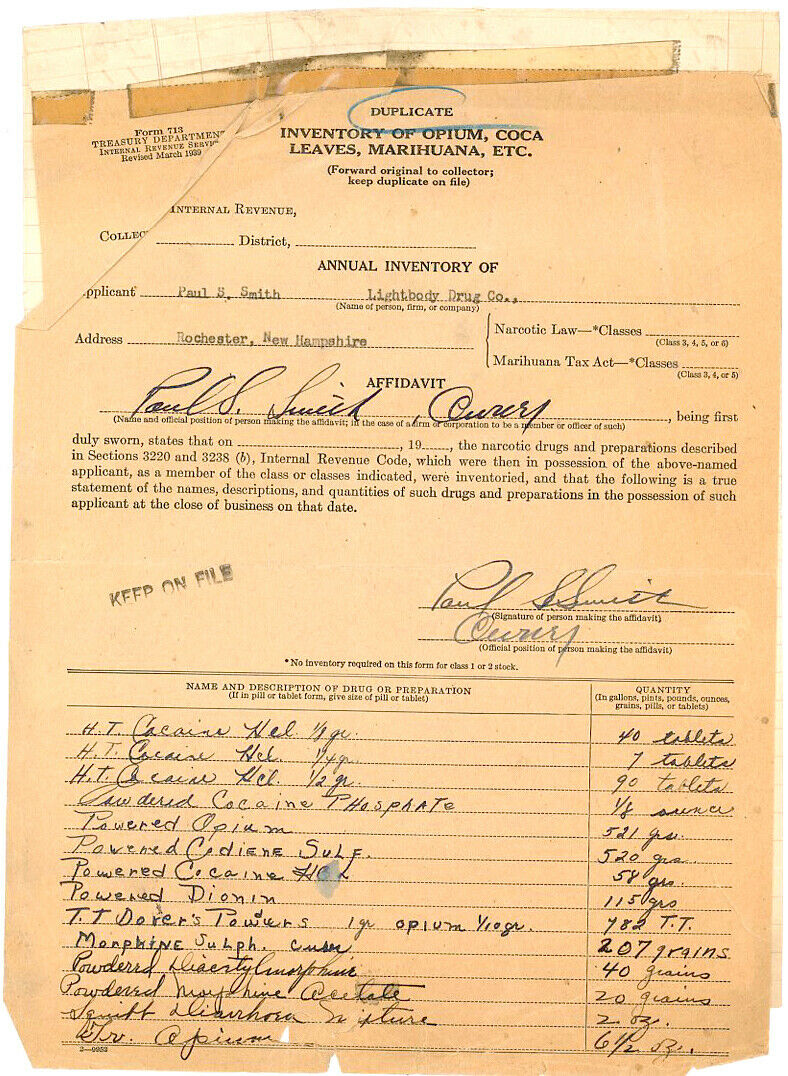 DUPLICATE
Form 713
TREASURY DEPARTMENT
INTERNAL REVENUE SERVI
Revised March 1939
INVENTORY OF OPIUM, COCA
LEAVES, MARIHUANA, ETC.
(Forward original to collector;
keep duplicate on file)
INTERNAL REVENUE,
COLLEC District,
ANNUAL INVENTORY OF
pplicant Paul S. Smith Lightbody Drug Co.,
(Name of person, firm, or company)
Address Rochester, New Hampshire
Narcotic Law—*Classes
(Class 3, 4, 5, or 6)
Marihuana Tax Act—*Classes
(Class 3, 4, or 5)
AFFIDAVIT
Paul S. Smith, Owner, being first
(Name and official position of person making the affidavit; in the case of a firm or corporation to be a member or officer of such)
duly sworn, states that on , 19 , the narcotic drugs and preparations described
in Sections 3220 and 3238 (b), Internal Revenue Code, which were then in possession of the above-named
applicant, as a member of the class or classes indicated, were inventoried, and that the following is a true
statement of the names, descriptions, and quantities of such drugs and preparations in the possession of such
applicant at the close of business on that date.
KEEP ON FILE
Paul S. Smith
(Signature of person making the affidavit)
Owner
(Official position of person making the affidavit)
*No inventory required on this form for class 1 or 2 stock.
NAME AND DESCRIPTION OF DRUG OR PREPARATION
(If in pill or tablet form, give size of pill or tablet)
QUANTITY
(In gallons, pints, pounds, ounces,
grains, pills, or tablets)
H.T. Cocaine Hcl. 1/8 gr. 40 tablets
H.T. Cocaine Hcl. 1/4 gr. 7 tablets
H.T. Cocaine Hcl. 1/2 gr. 90 tablets
Powdered Cocaine PHosphate 1/8 ounce
Powered Opium 521 grs.
Powered Codiene Sulf. 520 grs
Powered Cocaine HCL 58 grs.
Powered Dionin 115 grs
T.T Dover's Powers 1 gr opium 1/10 gr. 782 T.T.
Morphine Sulph. 207 grains
Powdered Diacetylmorphine 40 grains
Powdered Morphine Acetate 20 grains
Squibb Diarrhoea Mixture 2 oz.
Opium 6 1/2 oz.
2—9953